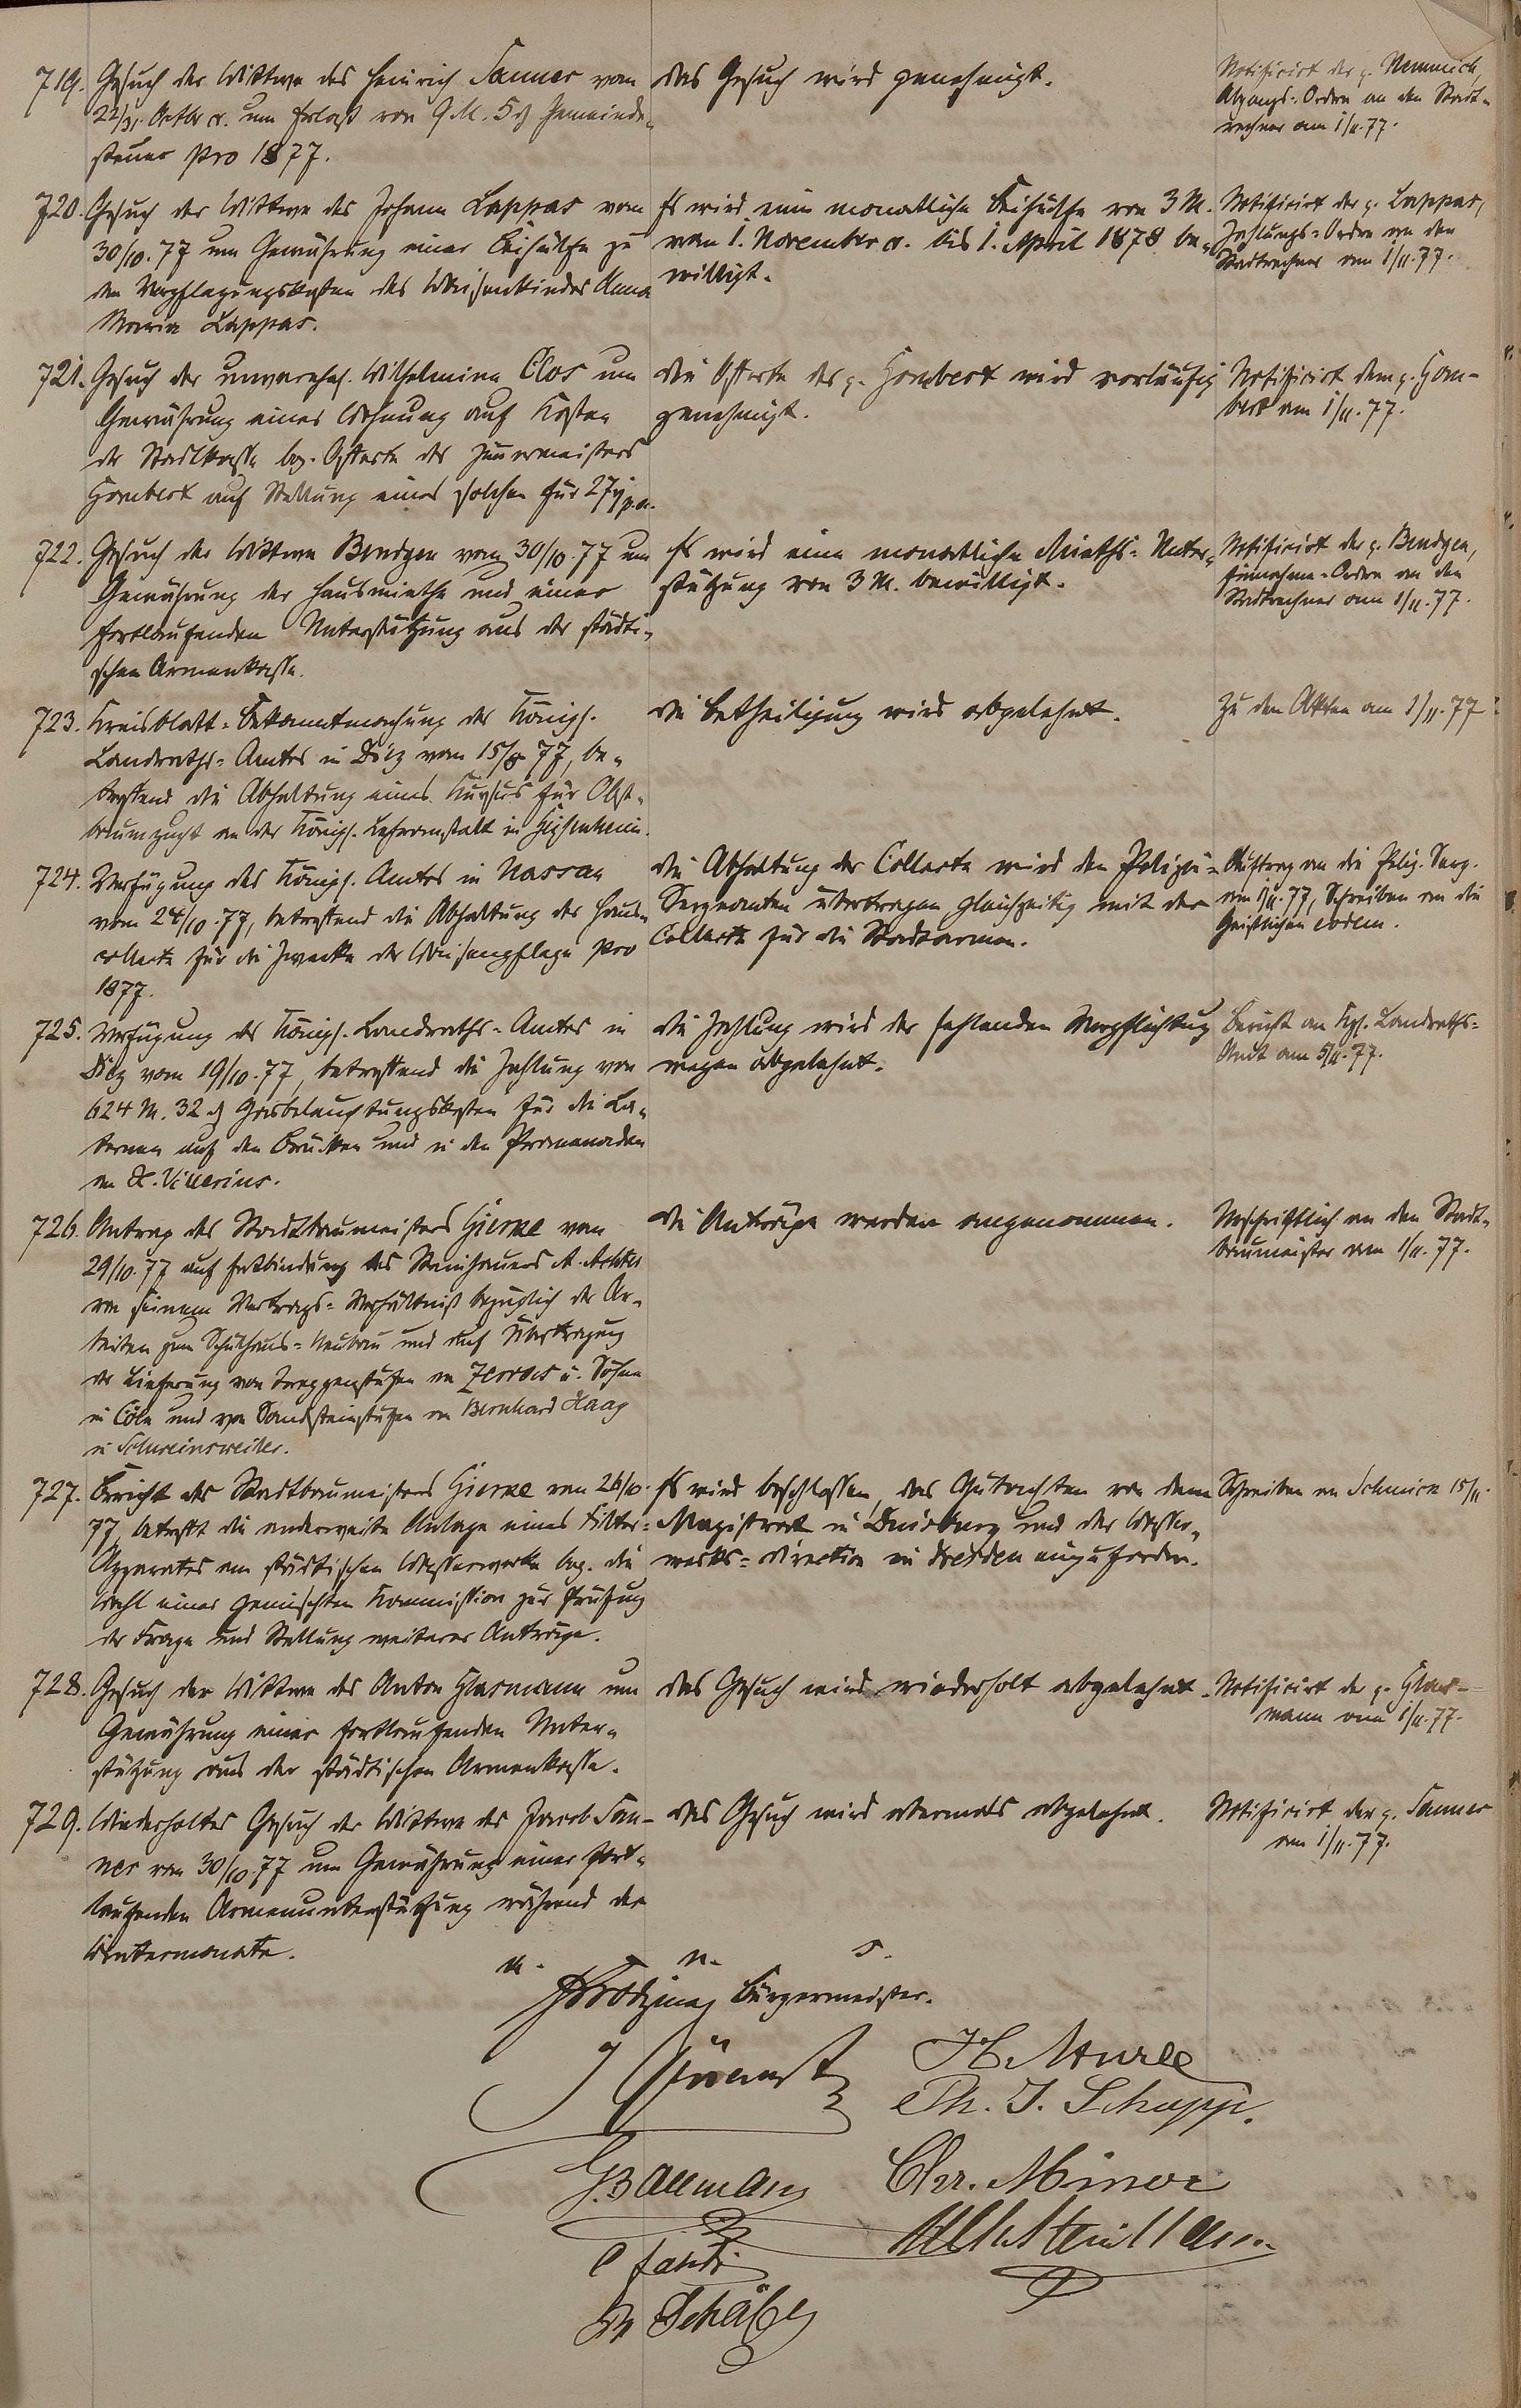 719. Gesuch der Wittwe des Heinrich Sanner vom
22/31. Octbr c. um Erlaß von 9 M. 5 ₰ Gemeinde-
steuer pro 1877.
Das Gesuch wird genehmigt.
Notificirt der p.
Abgangs-Ordre an den Stadt-
rechner am 1/11.77.
720. Gesuch der Wittwe des Johann Lappas vom
30/10.77 um Gewährung einer Beihülfe zu
den Verpflegungskosten des Waisenkindes Anna
Maria Lappas.
Es wird eine monatliche Beihülfe von 3 M.
vom 1. November c. bis 1. April 1878 be-
willigt.
Notificirt der p. Lappas,
Zahlungs-Ordre an den
Stadtrechner am 1/11.77.
721. Gesuch der unverehel. Wilhelmine Clos um
Gewährung einer Wohnung auf Kosten
der Stadtkasse bez. Offerte des Zimmermeisters
Gombert auf Stellung einer solchen für 27 p.a.
Die Offerte des p. Gombert wird vorläufig
genehmigt.
Notificirt dem p. Gom-
bert am 1/11.77.
722. Gesuch der Wittwe Bendgen vom 30/10.77 um
Gewährung der Hausmiethe und einer
fortlaufenden Unterstützung aus der städti-
schen Armenkasse.
Es wird eine monatliche Mieths-Unter-
stützung von 3 M. bewilligt.
Notificirt der p. Bendgen,
Einnahme-Ordre an den
Stadtrechner am 1/11.77.
723. Kreisblatt-Bekanntmachung des Königl.
Landraths-Amtes in Diez vom 15/8 77, be-
treffend die Abhaltung eines Kursus für Obst-
baumzucht an der Königl. Lehranstalt in Geisenheim.
Die Betheiligung wird abgelehnt.
Zu den Akten am 1/11.77.
724. Verfügung des Königl. Amtes in Nassau
vom 24/10.77, betreffend die Abhaltung der Haus-
collecte für die Zwecke der Waisenpflege pro
1877.
Die Abhaltung der Collecte wird den Polizei-
Sergeanten übertragen gleichzeitig mit der
Collecte für die Stadtarmen.
Auftrag an die Poliz. Serg.
am 1/11.77, Schreiben an die
Geistlichen eodem.
725. Verfügung des Königl. Landraths-Amtes in
Diez vom 19/10.77, betreffend die Zahlung von
624 M. 32 ₰ Gasbeleuchtungskosten für die La-
ternen auf den Brücken und in den Promenaden
an H. Villerius.
Die Zahlung wird der fehlenden Verpflichtung
wegen abgelehnt.
Bericht an Kgl. Landraths-
Amt am 5/11.77.
726. Antrag des Stadtbaumeisters Gierke vom
29/10.77 auf Entbindung des Steinhauers A.
von seinem Vertrags-Verhältniß bezüglich der Ar-
beiten zum Schulhaus-Neubau und auf Übertragung
der Lieferung von Treppenstufen an Zervas u. Söhne
in Cöln und von Sandsteinstufen an Bernhard Haag
in Schweinsweiler.
Die Anträge werden angenommen.
Abschriftlich an den Stadt-
baumeister am 1/11.77.
727. Bericht des Stadtbaumeisters Gierke vom 26/10.
77, betrifft die anderweite Anlage eines Filter-
Apparates am städtischen Wasserwerke bez. die
Wahl einer gemischten Kommission zur Prüfung
der Frage und Stellung weiterer Anträge.
Es wird beschlossen, das Gutachten von dem
Magistrat in Duisburg und der Wasser-
werks-Direction in Dresden einzufordern.
Schreiben an 15/11.
728. Gesuch der Wittwe des Anton Glasmann um
Gewährung einer fortlaufenden Unter-
stützung aus der städtischen Armenkasse.
Das Gesuch wird wiederholt abgelehnt.
Notificirt der p. Glas-
mann am 1/11.77.
729. Wiederholtes Gesuch der Wittwe des Jacob San-
ner vom 30/10.77 um Gewährung einer fort-
laufenden Armenunterstützung während der
Wintermonate.
Das Gesuch wird abermals abgelehnt.
Notificirt der p. Sanner
am 1/11.77.
Bürgermeister.
Ph. J. Schupp.
G. Ballmann
Chr. Minor
Schäfer